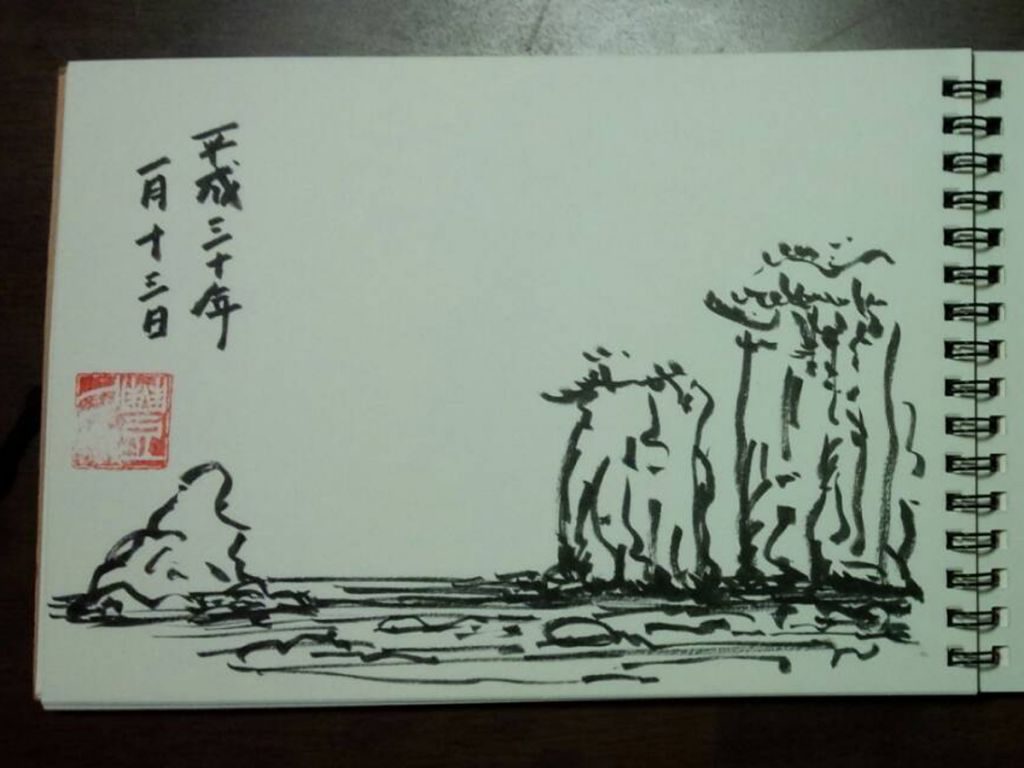 平成三十年
一月十三日